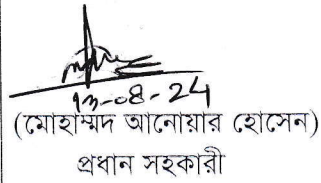 ১৩-০৪-24
(মোহাম্মদ আনোয়ার হোসেন)
প্রধান সহকারী